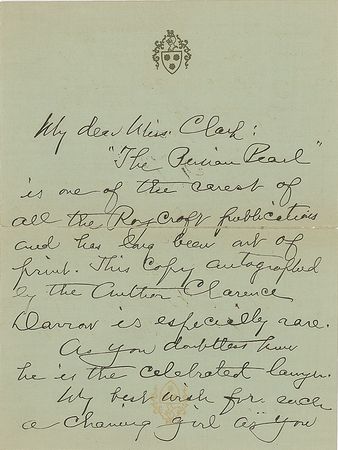 My dear Miss. Clark:
"The Persian Pearl"
is one of the rarest of
all the Roycroft publications
and has long been out of
print. This copy autographed
by the Author Clarence
Darrow is especially rare.
As you doubtless know
he is the celebrated lawyer.
My best wish for such
a charming girl as you